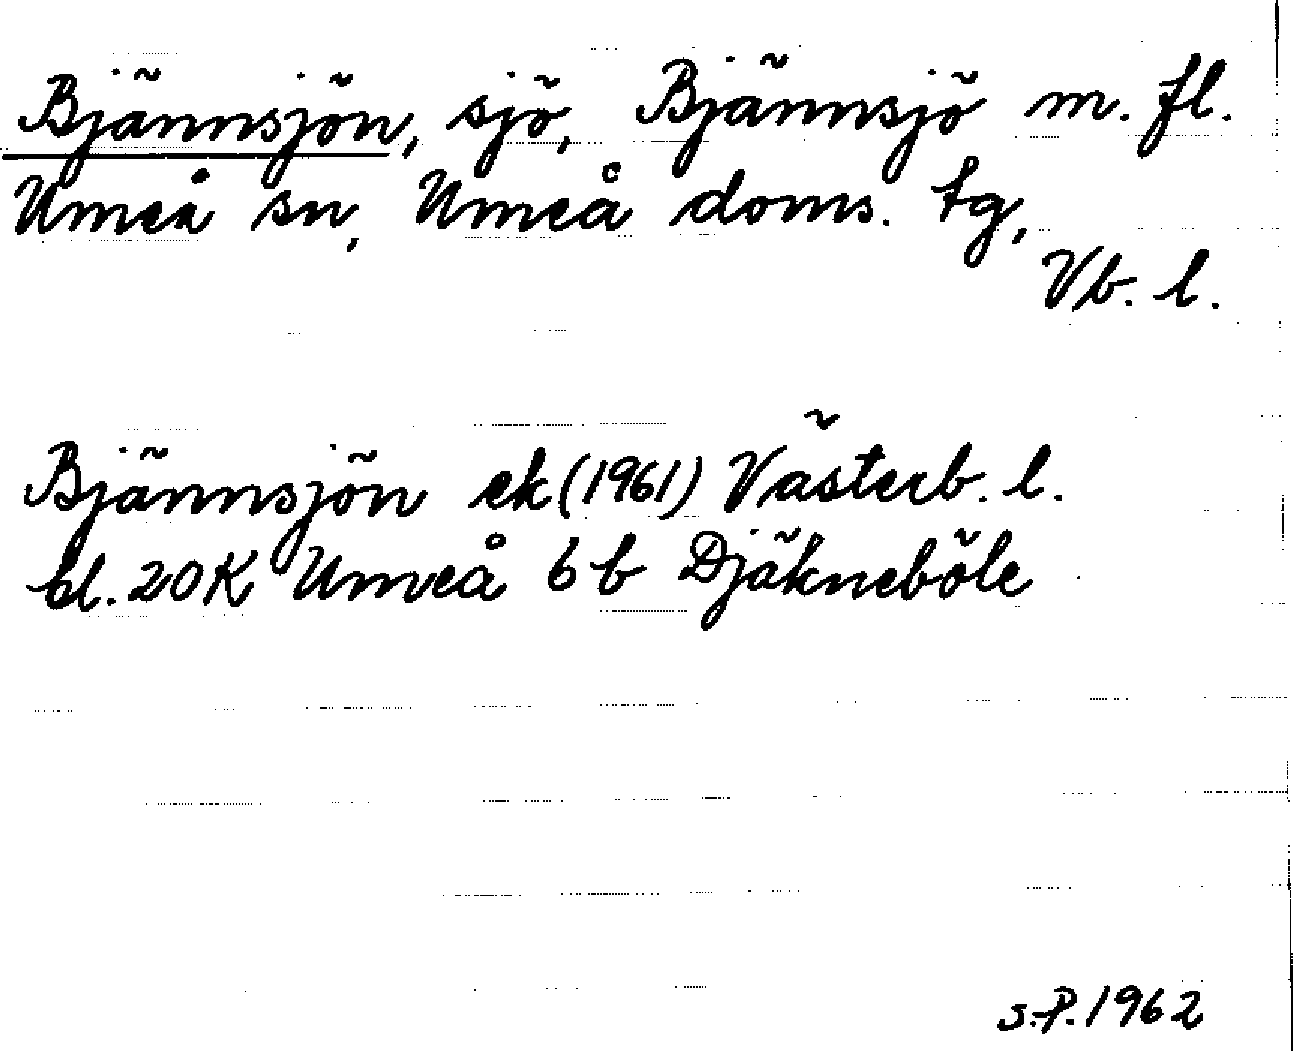 Bjännsjön, sjö, Bjännsjö m. fl.
Umeå sn, Umeå doms. tg,
Vb. l.
Bjännsjön ek (1961) Västerb. l.
bl. 20K Umeå 6b Djäkneböle
S.P. 1962